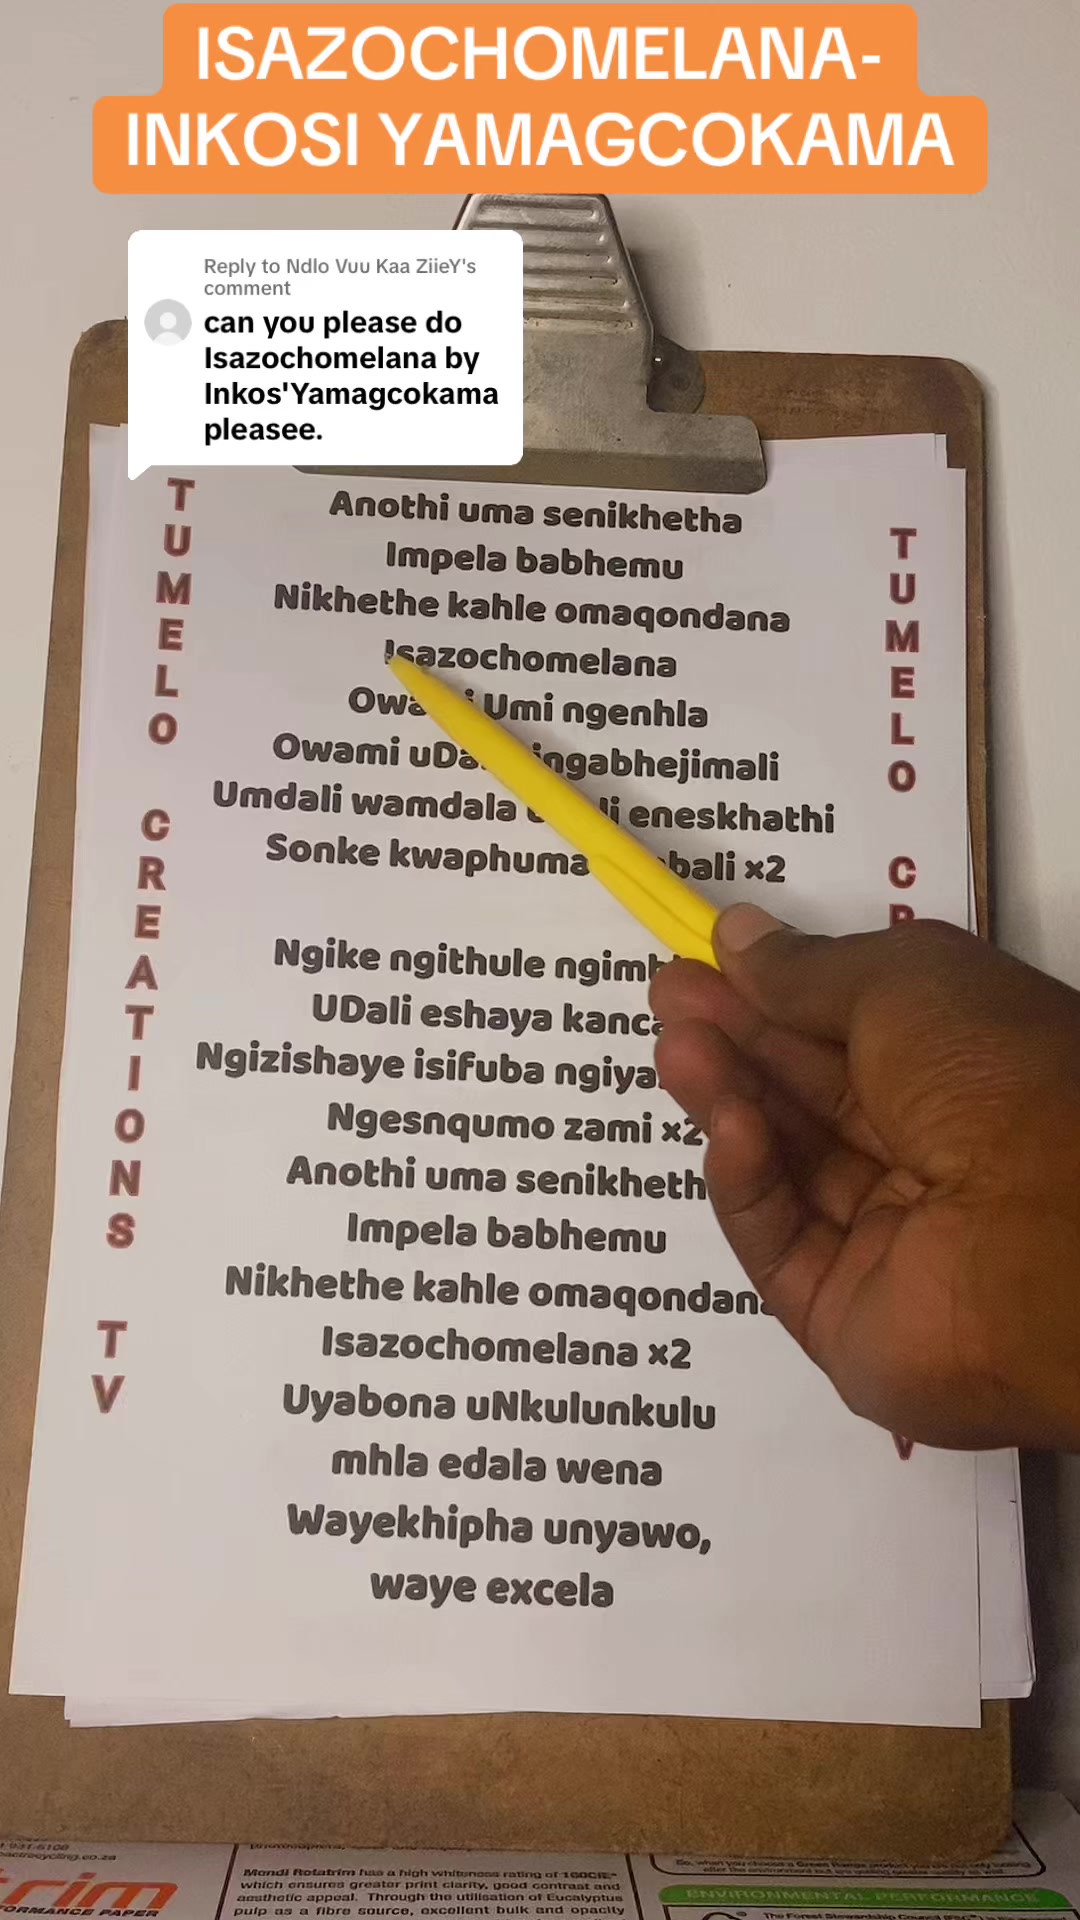 ISAZOCHOMELANA-
INKOSI YAMAGCOKAMA
Reply to Ndlo Vuu Kaa ZiieY's
comment
can you please do
Isazochomelana by
Inkos'Yamagcokama
pleasee.
TUMELO CREATIONS TV
Anothi uma senikhetha
Impela babhemu
Nikhethe kahle omaqondana
Isazochomelana
Umi ngenhla
Owami
Umdali wamdala eneskhathi
Sonke kwaphuma ×2
Ngike ngithule
UDali eshaya
Ngizishaye isifuba
Ngesnqumo zami ×2
Anothi uma
Impela babhemu
Nikhethe kahle
Isazochomelana ×2
Uyabona uNkulunkulu
mhla edala wena
Wayekhipha unyawo,
waye excela
TUMELO
931-5108
trim
ORMANCE PAPER
Mondi Rotatrim has a high whiteness rating of
which ensures greater print clarity, good contrast and
aesthetic appeal. Through the utilisation of Eucalyptus
pulp as a fibre source, excellent bulk and opacity
ENVIRONMENTAL PERFORMANCE
The Forest Stewardship Council